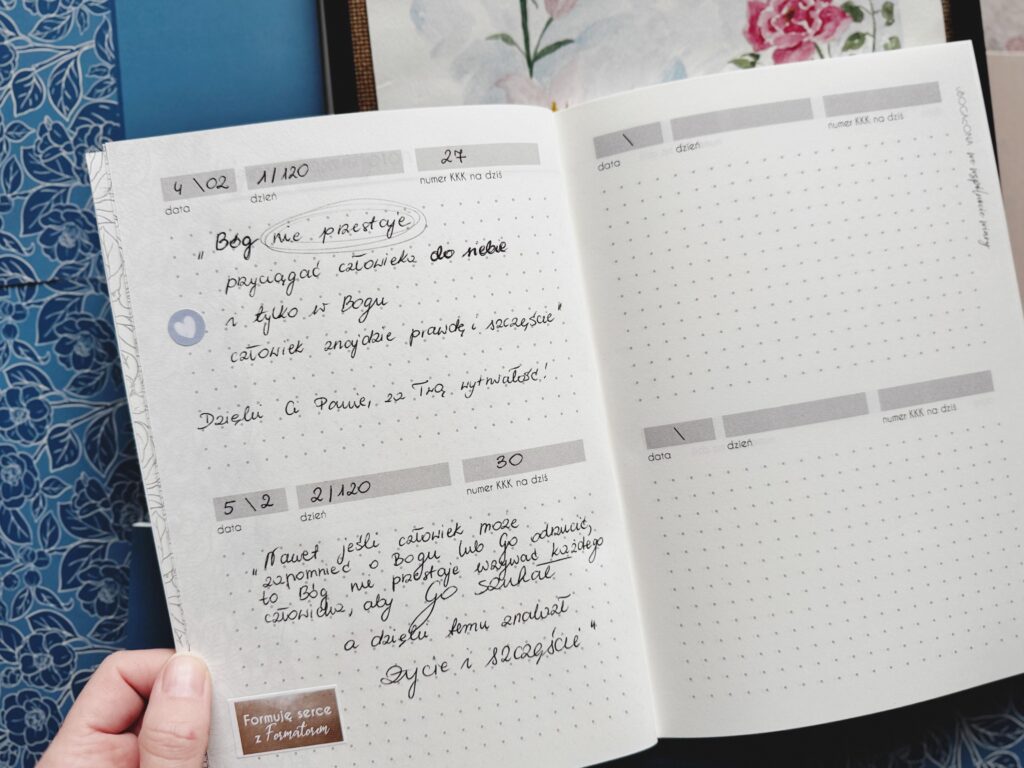 4 \ 02
1/120
27
data
dzień
numer KKK na dziś
„Bóg nie przestaje
przyciągać człowieka do siebie
i tylko w Bogu
człowiek znajdzie prawdę i szczęście"
Dzięki Ci Panie, za Twą wytrwałość!
5 \ 2
2/120
30
data
dzień
numer KKK na dziś
„Nawet jeśli człowiek może
zapomnieć o Bogu lub Go odrzucić,
to Bóg nie przestaje wzywać każdego
człowieka, aby Go szukał
a dzięki temu znalazł
życie i szczęście"
Formuję serce
z Formatorem
\
data
dzień
numer KKK na dziś
\
data
dzień
numer KKK na dziś